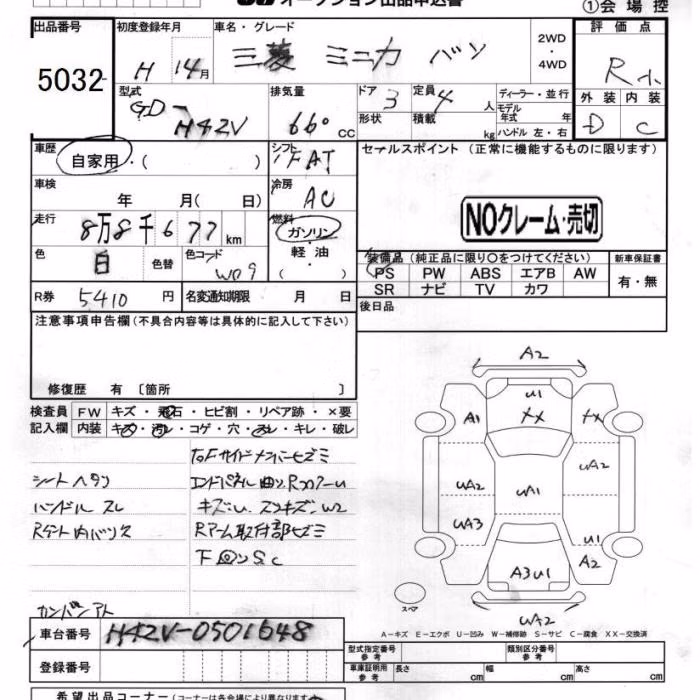 オークション出品申込書
①会場控
出品番号 初度登録年月 車名・グレード 評価点
5032 H 14月 三菱 ミニカ バン 2WD・4WD R
型式 排気量 ドア 定員 ディーラー・並行 外装 内装
GD-H42V 660cc 3 4人 モデル年式 年 D C
形状 積載 kg ハンドル 左・右
車歴 シフト セールスポイント (正常に機能するものに限ります)
自家用・( ) FAT
車検 年 月( 日) 冷房 AC
NOクレーム・売切
走行 8万8千677km 燃料 ガソリン・軽油・
色 白 色替 色コード W09
装備品 (純正品に限り〇をつけてください) 新車保証書
PS PW ABS エアB AW 有・無
SR ナビ TV カワ
R券 5410円 名変通知期限 月 日
後日品
注意事項申告欄 (不具合内容等は具体的に記入して下さい)
修復歴 有 〔箇所 〕
検査員記入欄 FW キズ・飛石・ヒビ割・リペア跡・×要
内装 キズ・汚レ・コゲ・穴・スレ・キレ・破レ
シートヘタリ
ハンドルスレ
下回りSC
A2
U1
A1 XX XX
UA2 UA1 UA2
UA3 U1
A3U1 A2
スペア
UA2
A-キズ E-エクボ U-凹み W-補修跡 S-サビ C-腐食 XX-交換済
車台番号 H42V-0501648
登録番号
型式指定番号 参考 類別区分番号 参考
車庫証明用 参考 長さ cm 幅 cm 高さ cm
希望出品コーナー